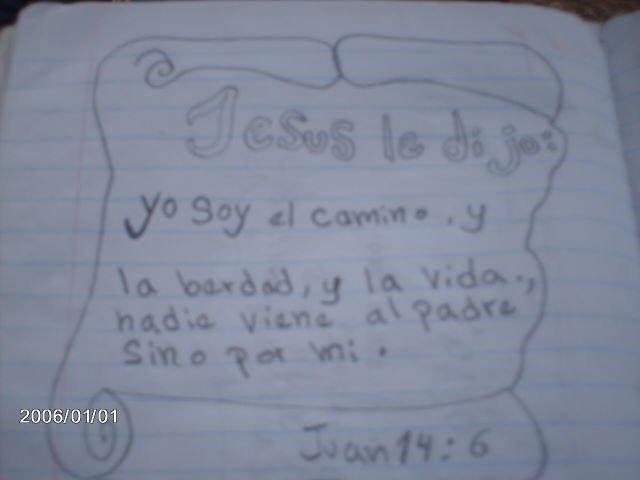 Jesus le dijo:
yo soy el camino, y
la berdad, y la vida.,
nadie viene al padre
Sino por mi.
2006/01/01
Juan 14:6